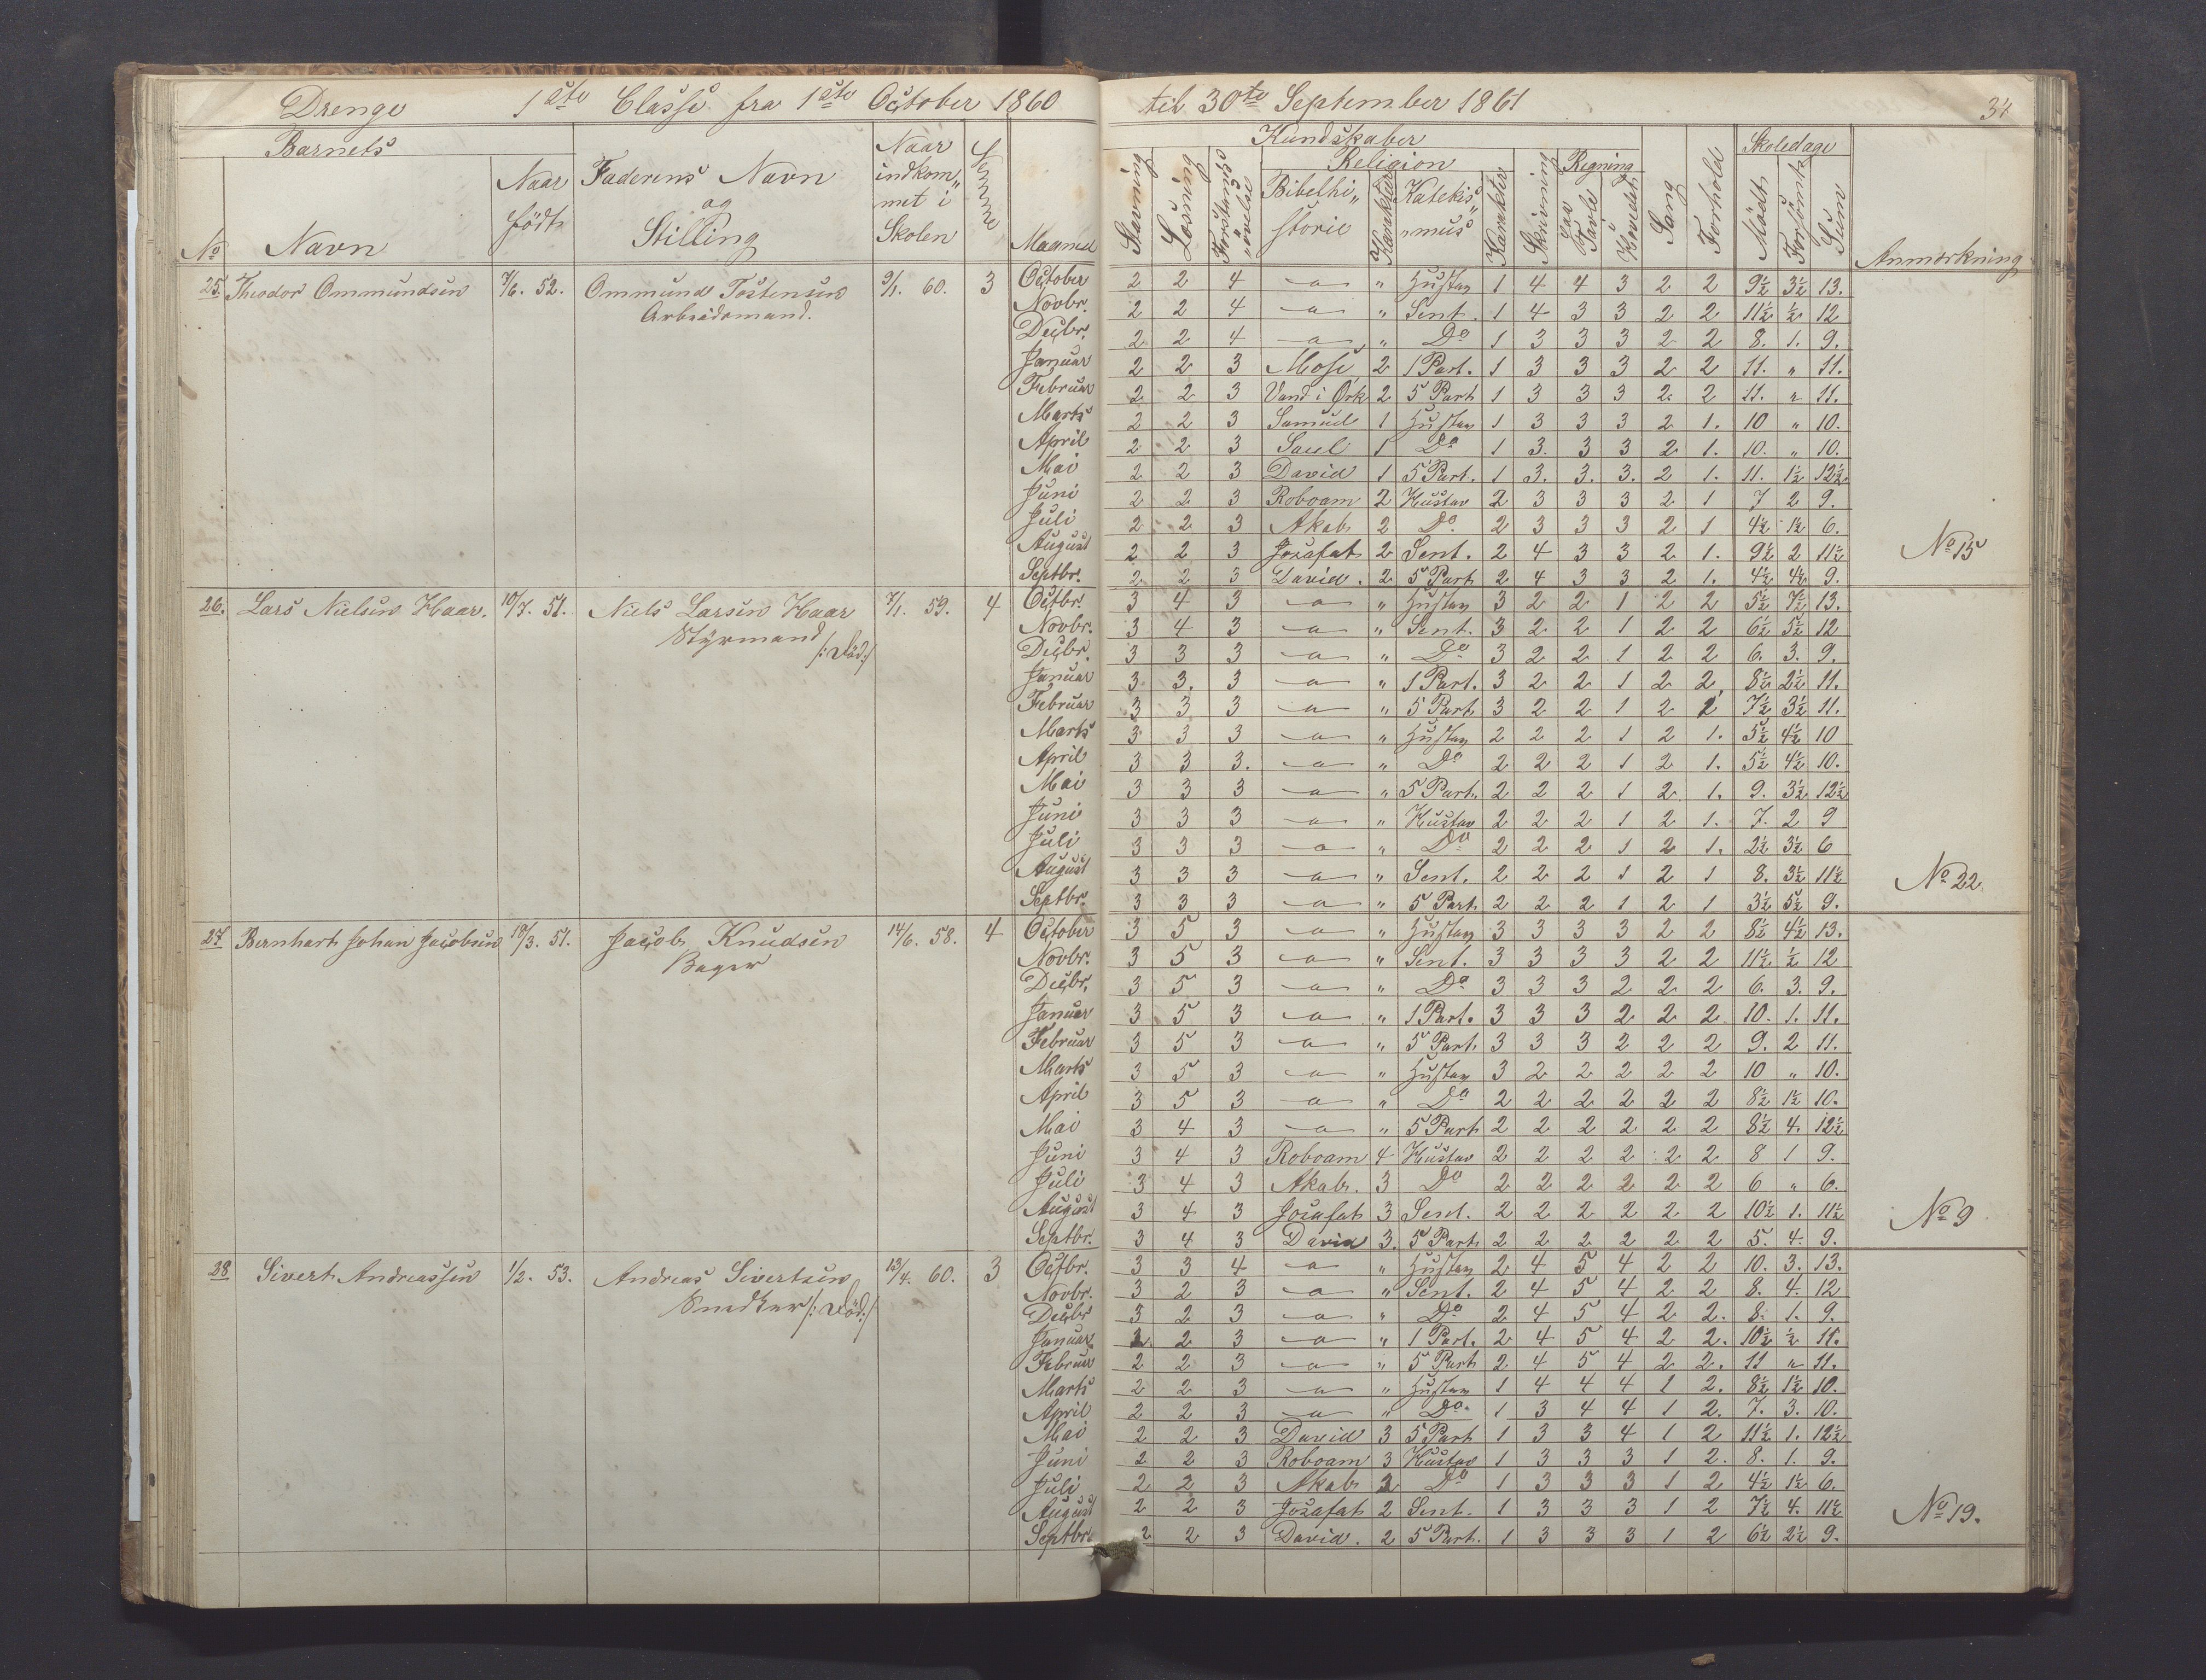 Drenge 1ste Classe fra 1ste October 1860 til 30te September 1861 34
Barnets Kundskaber Skoledage
No Navn Naar født Faderens Navn og Stilling Naar indkom„met i Skolen Evne Maaned Stavning Læsning Forstands„øvelse Religion Bibelhi„storie Karakter Katekis„mus Karakter Skrivning Regning paa Tavle Hovedet Sang Forhold Mødt Forsømte Sum Anmærkning
25. Theodor Ommundsen 7/6. 52. Ommund Tostensen 9/1. 60. 3 October 2 2 4 — „ Hustav 1 4 4 3 2 2 9½ 3½ 13.
Arbeidsmand. Novbr. 2 2 4 — „ Sent. 1 4 3 3 2 2 11½ ½ 12
Decbr. 2 2 4 — „ Do 1 3 3 3 2 2 8. 1. 9.
Januar 2 2 3 Mose 2 1 Part. 1 3 3 3 2 2 11. „ 11.
Februar 2 2 3 Vand i Ørk 2 5 Part 1 3 3 3 2 2 11. „ 11.
Marts 2 2 3 Samuel 1 Hustav 1 3 3 3 2 1. 10 „ 10.
April 2 2 3 Saul 1 Do 1 3. 3 3 2 1. 10. „ 10.
Mai 2 2 3 David 1 5 Part. 1 3. 3. 3. 2 1. 11. 1½ 12½
Juni 2 2 3 Roboam 2 Hustav 2 3 3 3 2 1 7 2 9.
Juli 2 2 3 Akab 2 Do 2 3 3 3 2 1 4½ 1½ 6.
August 2 2 3 Josafat 2 Sent. 2 4 3 3 2 1. 9½ 2 11½ No 15
Septbr. 2 2 3 David. 2 5 Part 2 4 3 3 2 1. 4½ 4½ 9.
26. Lars Nielsen Haar. 10/7. 51. Niels Larsen Haar 7/1. 59. 4 Octbr. 3 4 3 — „ Hustav 3 2 2 1 2 2 5½ 7½ 13.
Styrmand /: Død :/ Novbr. 3 4 3 — „ Sent. 3 2 2 1 2 2 6½ 5½ 12
Decbr. 3 3 3 — „ Do 3 2 2 1 2 2 6. 3. 9.
Januar 3 3. 3 — „ 1 Part. 3 2 2 1 2 2 8½ 2½ 11.
Februar 3 3 3 — „ 5 Part 3 2 2 1 2 2 7½ 3½ 11.
Marts 3 3 3 — „ Hustav 2 2 2 1 2 1. 5½ 4½ 10
April 3 3 3. — „ Do 2 2 2 1 2 1. 5½ 4½ 10.
Mai 3 3 3 — „ 5 Part. 2 2 2 1 2 1. 9. 3½ 12½
Juni 3 3 3 — „ Hustav 2 2 2 1 2 1. 7. 2 9
Juli 3 3 3 — „ Do 2 2 2 1 2 1. 2½ 3½ 6
August 3 3 3 — „ Sent. 2 2 2 1 2 1 8. 3½ 11½ No 22
Septbr. 3 3 3 — „ 5 Part 2 2 2 1 2 1 3½ 5½ 9.
27 Bernhart Johan Jacobsen 18/3. 51. Jacob Knudsen 14/6. 58. 4 October 3 5 3 — „ Hustav 3 3 3 3 2 2 8½ 4½ 13.
Bager Novbr. 3 5 3 — „ Sent. 3 3 3 3 2 2 11½ ½ 12
Decbr. 3 5 3 — „ Do 3 3 3 2 2 2 6. 3. 9.
Januar 3 5 3 — „ 1 Part. 3 3 3 2 2 2 10. 1. 11.
Februar 3 5 3 — „ 5 Part. 3 3 3 2 2 2 9. 2 11.
Marts 3 5 3 — „ Hustav 3 2 2 2 2 2 10 „ 10.
April 3 5 3 — „ Do 2 2 2 2 2 2 8½ 1½ 10.
Mai 3 4 3 — „ 5 Part 2 2 2 2 2 2 8½ 4. 12½
Juni 3 4 3 Roboam 4 Hustav 2 2 2 2 2 2 8 1 9.
Juli 3 4 3 Akab. 3 Do 2 2 2 2 2 2 6 „ 6.
August 3 4 3 Josafat 3 Sent. 2 2 2 2 2 2 10½ 1. 11½ No 9
Septbr. 3 4 3 David 3. 5 Part. 2 2 2 2 2 2 5. 4. 9.
28 Sivert Andreassen 1/2. 53. Andreas Sivertsen 13/4. 60. 3 Octbr. 3 3 4 — „ Hustav 2 4 5 4 2 2 10. 3. 13.
Snedker /: Død :/ Novbr. 3 2 3 — „ Sent. 2 4 5 4 2 2 8. 4. 12
Decbr 3 2 3 — „ Do 2 4 5 4 2 2. 8. 1. 9.
Januar 2 2 3 — „ 1 Part. 2 4 5 4 2 2. 10½ ½ 11.
Februar 2 2 3 — „ 5 Part 2 4 5 4 2 2. 11 „ 11.
Marts 2 2 3 — „ Hustav 1 4 4 4 1 2. 8½ 1½ 10.
April 2 2 3 — „ Do. 1 3 4 4 1 2. 7. 3. 10.
Mai 2 2 3 David 3 5 Part 1 3 3 4 1 2 11½ 1. 12½
Juni 2 2 3 Roboam 3 Hustav 1 3 3 3 1 2. 8. 1. 9.
Juli 2 2 3 Akab 2 Do 1 3 3 3 1 2 4½ 1½ 6.
August 2 2 3 Josafat 2 Sent. 1 3 3 3 1 2 7½ 4. 11½ No 19.
Septbr. 2 2 3 David. 2 5 Part. 1 3 3 3 1 2 6½ 2½ 9.